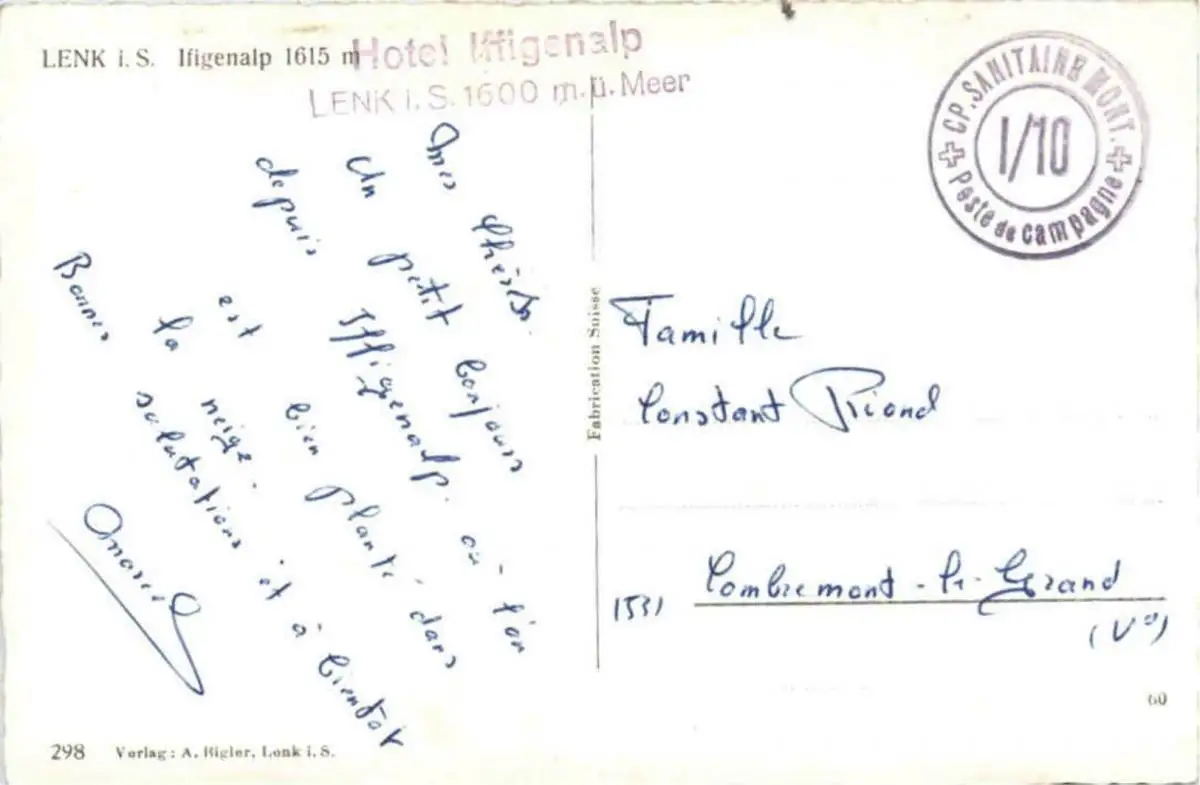 LENK i. S. Ifigenalp 1615 m
Hotel Iffigenalp
LENK i. S. 1600 m. ü. Meer
CP. SANITAIRE MONT.
I/10
Poste de campagne
Mes chers.
Un petit bonjour
depuis Iffigenalp. où l'on
est bien planté dans
la neige.
Bonnes salutations et à bientôt
Marcel
Fabrication Suisse
Famille
Constant Riond
1531 Combremont-le-Grand
(Vd)
60
298 Verlag: A. Rigler, Lenk i. S.